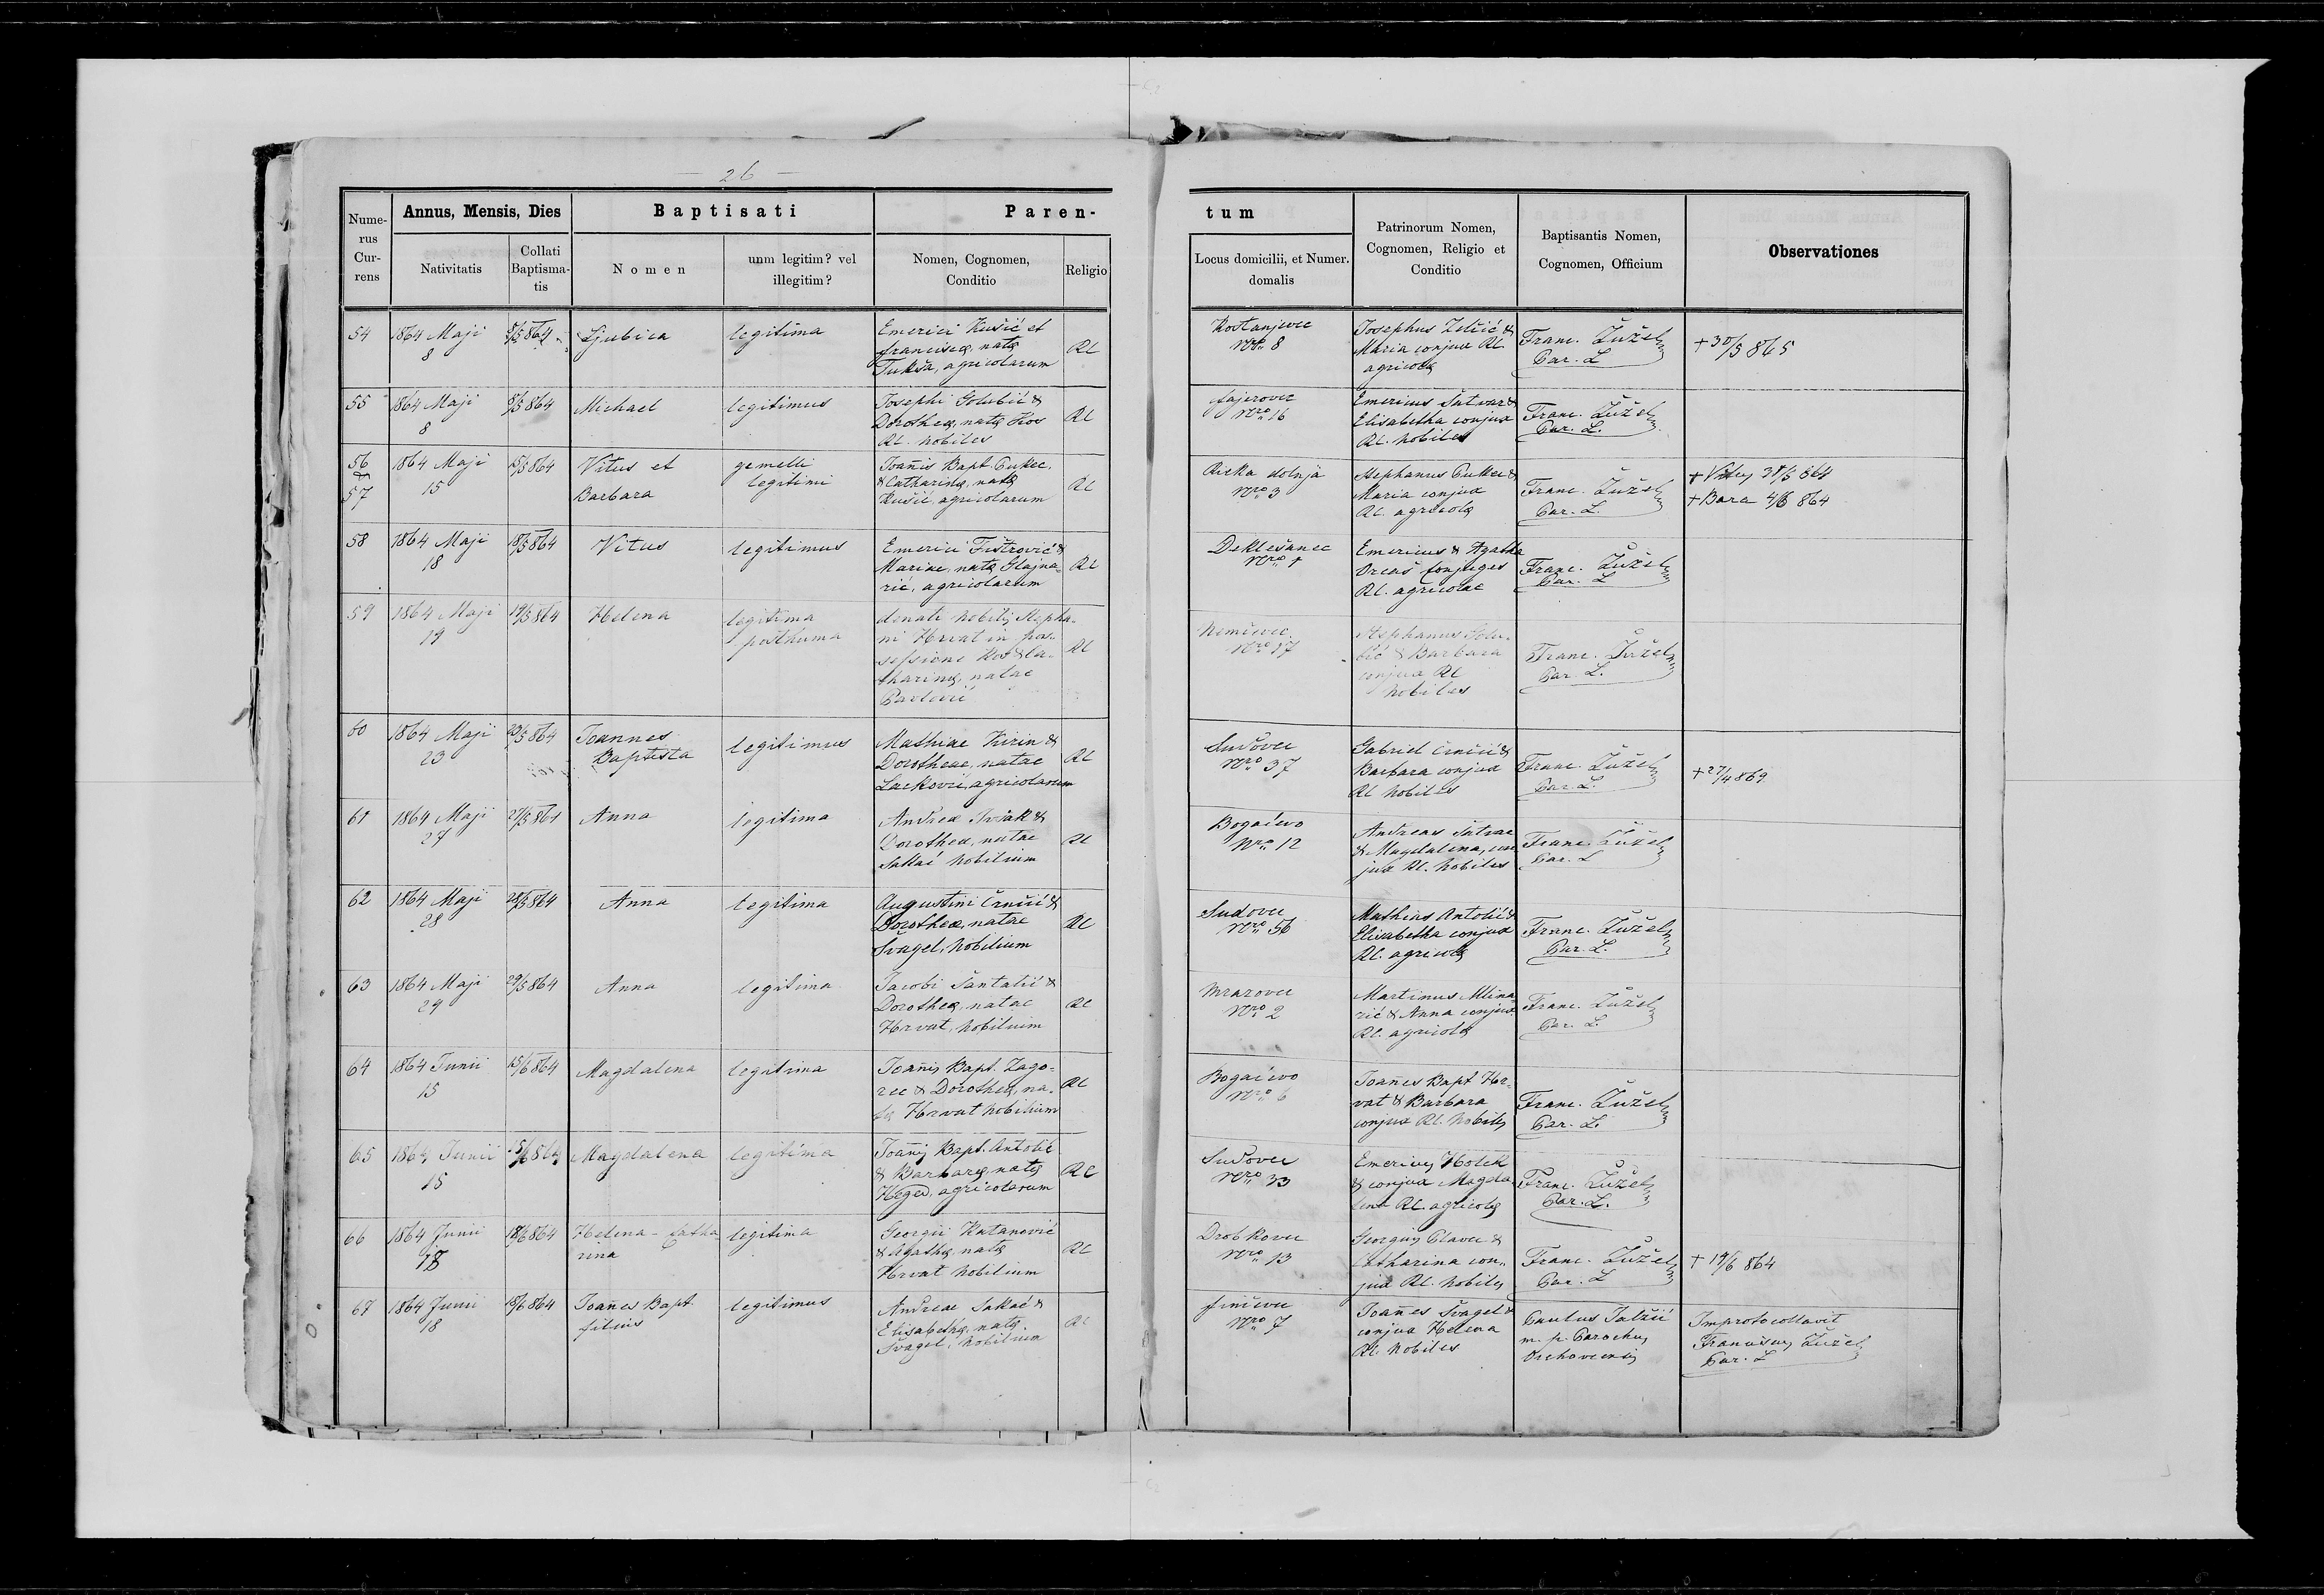 — 26 —
Nume-
rus
Cur-
rens
Annus, Mensis, Dies
Nativitatis
Collati
Baptisma-
tis
Baptisati
Nomen
unm legitim? vel
illegitim?
Paren-
Nomen, Cognomen,
Conditio
Religio
tum
Locus domicilii, et Numer.
domalis
Patrinorum Nomen,
Cognomen, Religio et
Conditio
Baptisantis Nomen,
Cognomen, Officium
Observationes
54
1864 Maji
8
8/5 864
Ljubica
legitima
Emerici Kušić et
Franciscæ, natæ
Tukša, agricolarum
RC
Kostanjevec
Nro 8
Josephus Zelčić &
Maria conjux RC
agricolæ
Franc. Žužel
Par. L
+ 30/5 865
55
1864 Maji
8
8/5 864
Michael
legitimus
Josephi Golubić &
Dorotheæ, natæ Kos
RC. nobiles
RC
Fajerovec
Nro 16
Emericus Šatvar &
Elisabetha conjux
RC. nobiles
Franc. Žužel
Par. L.
56
&
57
1864 Maji
15
15/5 864
Vitus et
Barbara
gemelli
legitimi
Joañis Bapt. Cukec,
& Catharinæ, natæ
Kušić agricolarum
RC
Rieka dolnja
Nro 3
Stephanus Cukec &
Maria conjux
RC. agricolæ
Franc. Žužel
Par. L.
+ Vitus 31/5 864
+ Bara 4/6 864
58
1864 Maji
18
18/5 864
Vitus
legitimus
Emerici Fištrović &
Mariae, natæ Glajna-
rić, agricolarum
RC
Deklešanec
Nro 1
Emericus & Agatha
Orcaš conjuges
RC. agricolae
Franc. Žužel
Par. L
59
1864 Maji
19
19/5 864
Helena
legitima
posthuma
denati nobilis Stepha-
ni Hrvat in pos-
sessione Kos & Ca-
tharinæ, natae
Pavlović
RC
Nemčevec
Nro 17
Stephanus Golu-
bić & Barbara
conjux RC
nobiles
Franc. Žužel
Par. L.
60
1864 Maji
23
23/5 864
Joannes
Baptista
legitimus
Mathiae Kirin &
Dorotheae, natae
Lacković, agricolarum
RC
Sudovec
Nro 37
Gabriel Črnčić &
Barbara conjux
RC nobiles
Franc. Žužel
Par. L.
+ 27/4 869
61
1864 Maji
27
27/5 864
Anna
legitima
Andreæ Iršak &
Dorotheæ, natae
Sakač nobilium
RC
Bogačevo
Nro 12
Andreas Šatvar
& Magdalena, con
jux RC. nobiles
Franc. Žužel
Par. L
62
1864 Maji
28
28/5 864
Anna
legitima
Augustini Črnčić &
Dorotheæ, natae
Švagel, nobilium
RC
Sudovec
Nro 56
Mathias Antolić &
Elisabetha conjux
RC. agricolæ
Franc. Žužel
Par. L.
63
1864 Maji
29
29/5 864
Anna
legitima
Jacobi Šantalić &
Dorotheæ, natae
Hrvat, nobilium
RC
Mrazovec
Nro 2
Martinus Mlina-
rić & Anna conjux
RC. agricolæ
Franc. Žužel
Par. L.
64
1864 Junii
15
15/6 864
Magdalena
legitima
Joañis Bapt. Zago-
rec & Dorotheæ, na-
tæ Hrvat nobilium
RC
Bogačevo
Nro 6
Joañes Bapt Hr-
vat & Barbara
conjux RC. nobiles
Franc. Žužel
Par. L.
65
1864 Junii
15
15/6 864
Magdalena
legitima
Joañis Bapt. Antolić
& Barbaræ, natæ
Heged, agricolarum
RC
Sudovec
Nro 33
Emericus Hotek
& conjux Magda-
lena RC. agricolæ
Franc. Žužel
Par. L.
66
1864 Junii
18
18/6 864
Helena – Catha-
rina
legitima
Georgii Katanović
& Agathæ, natæ
Hrvat nobilium
RC
Drobkovec
Nro 13
Georgius Glavec &
Catharina con-
jux RC. nobiles
Franc. Žužel
Par. L
+ 19/6 864
67
1864 Junii
18
18/6 864
Joañes Bapt
filius
legitimus
Andreae Sakač &
Elisabethæ, natæ
Švagel, nobilium
RC
Finčevec
Nro 7
Joañes Švagel &
conjux Helena
RC. nobiles
Paulus Jalžić
m. p. Parochus
Orehovcensis
Improtocollavit
Franciscus Žužel
Par. L